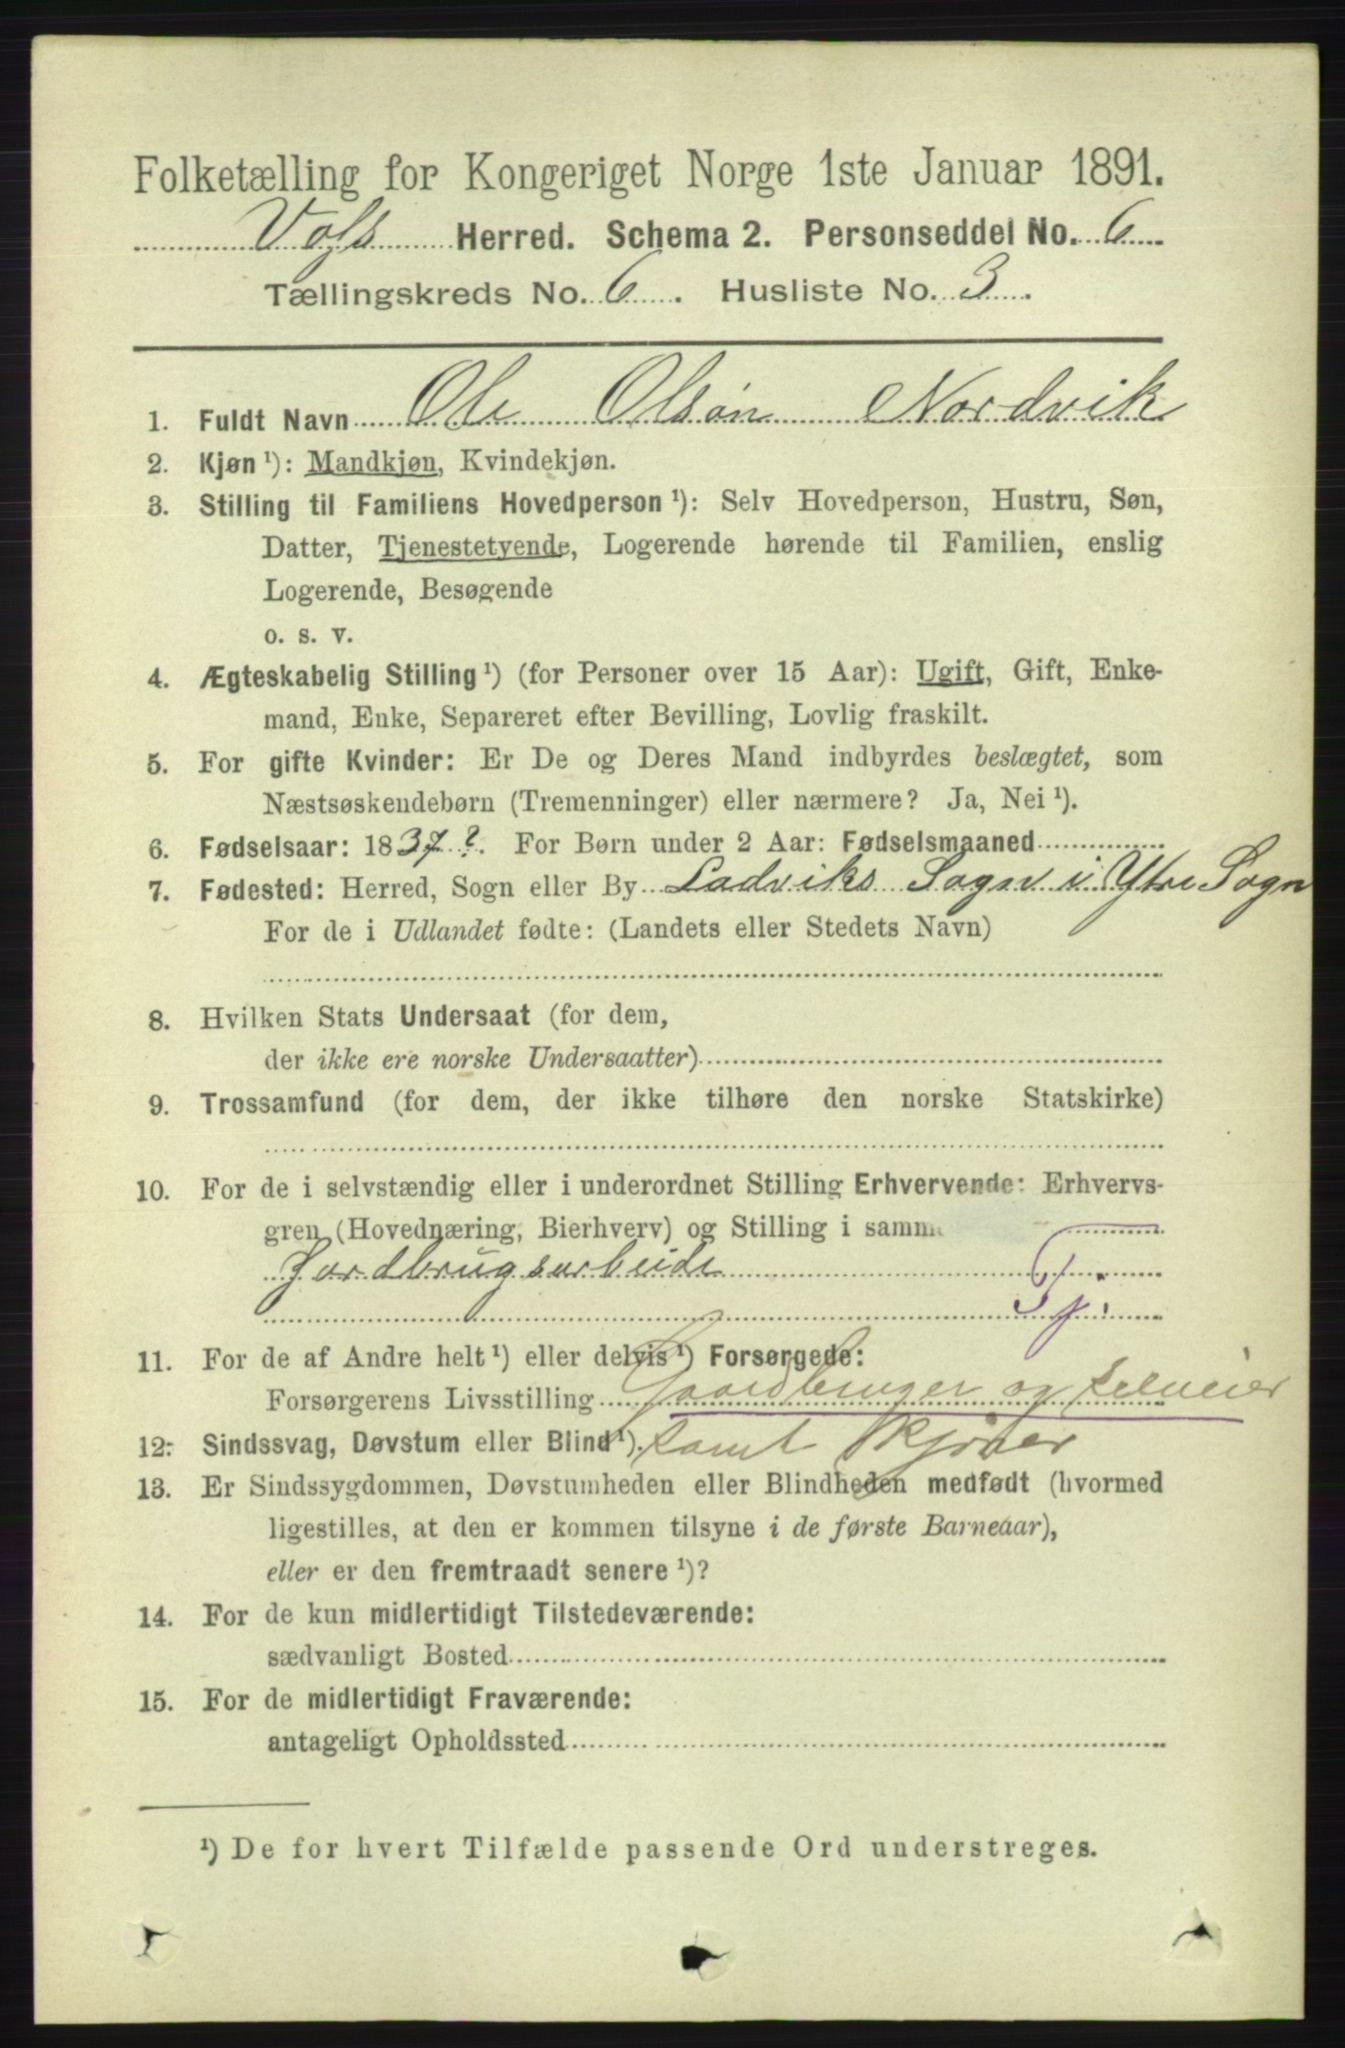 Folketælling for Kongeriget Norge 1ste Januar 1891.
Vols Herred. Schema 2. Personseddel No. 6
Tællingskreds No. 6. Husliste No. 3.
1. Fuldt Navn Ole Olsøn Nordvik
2. Kjøn ¹): Mandkjøn, Kvindekjøn.
3. Stilling til Familiens Hovedperson ¹): Selv Hovedperson, Hustru, Søn,
Datter, Tjenestetyende, Logerende hørende til Familien, enslig
Logerende, Besøgende
o. s. v.
4. Ægteskabelig Stilling ¹) (for Personer over 15 Aar): Ugift, Gift, Enke-
mand, Enke, Separeret efter Bevilling, Lovlig fraskilt.
5. For gifte Kvinder: Er De og Deres Mand indbyrdes beslægtet, som
Næstsøskendebørn (Tremenninger) eller nærmere? Ja, Nei ¹).
6. Fødselsaar: 1837?. For Børn under 2 Aar: Fødselsmaaned
7. Fødested: Herred, Sogn eller By Ladviks Sogn i Ytre Sogn
For de i Udlandet fødte: (Landets eller Stedets Navn)
8. Hvilken Stats Undersaat (for dem,
der ikke ere norske Undersaatter)
9. Trossamfund (for dem, der ikke tilhøre den norske Statskirke)
10. For de i selvstændig eller i underordnet Stilling Erhvervende: Erhvervs-
gren (Hovednæring, Bierhverv) og Stilling i samm
Jordbrugsarbeide
Tj.
11. For de af Andre helt ¹) eller delvis ¹) Forsørgede:
Forsørgerens Livsstilling Gaardbruger og selveier
12. Sindssvag, Døvstum eller Blind ¹). samt
13. Er Sindssygdommen, Døvstumheden eller Blindheden medfødt (hvormed
ligestilles, at den er kommen tilsyne i de første Barneaar),
eller er den fremtraadt senere ¹)?
14. For de kun midlertidigt Tilstedeværende:
sædvanligt Bosted
15. For de midlertidigt Fraværende:
antageligt Opholdssted
¹) De for hvert Tilfælde passende Ord understreges.